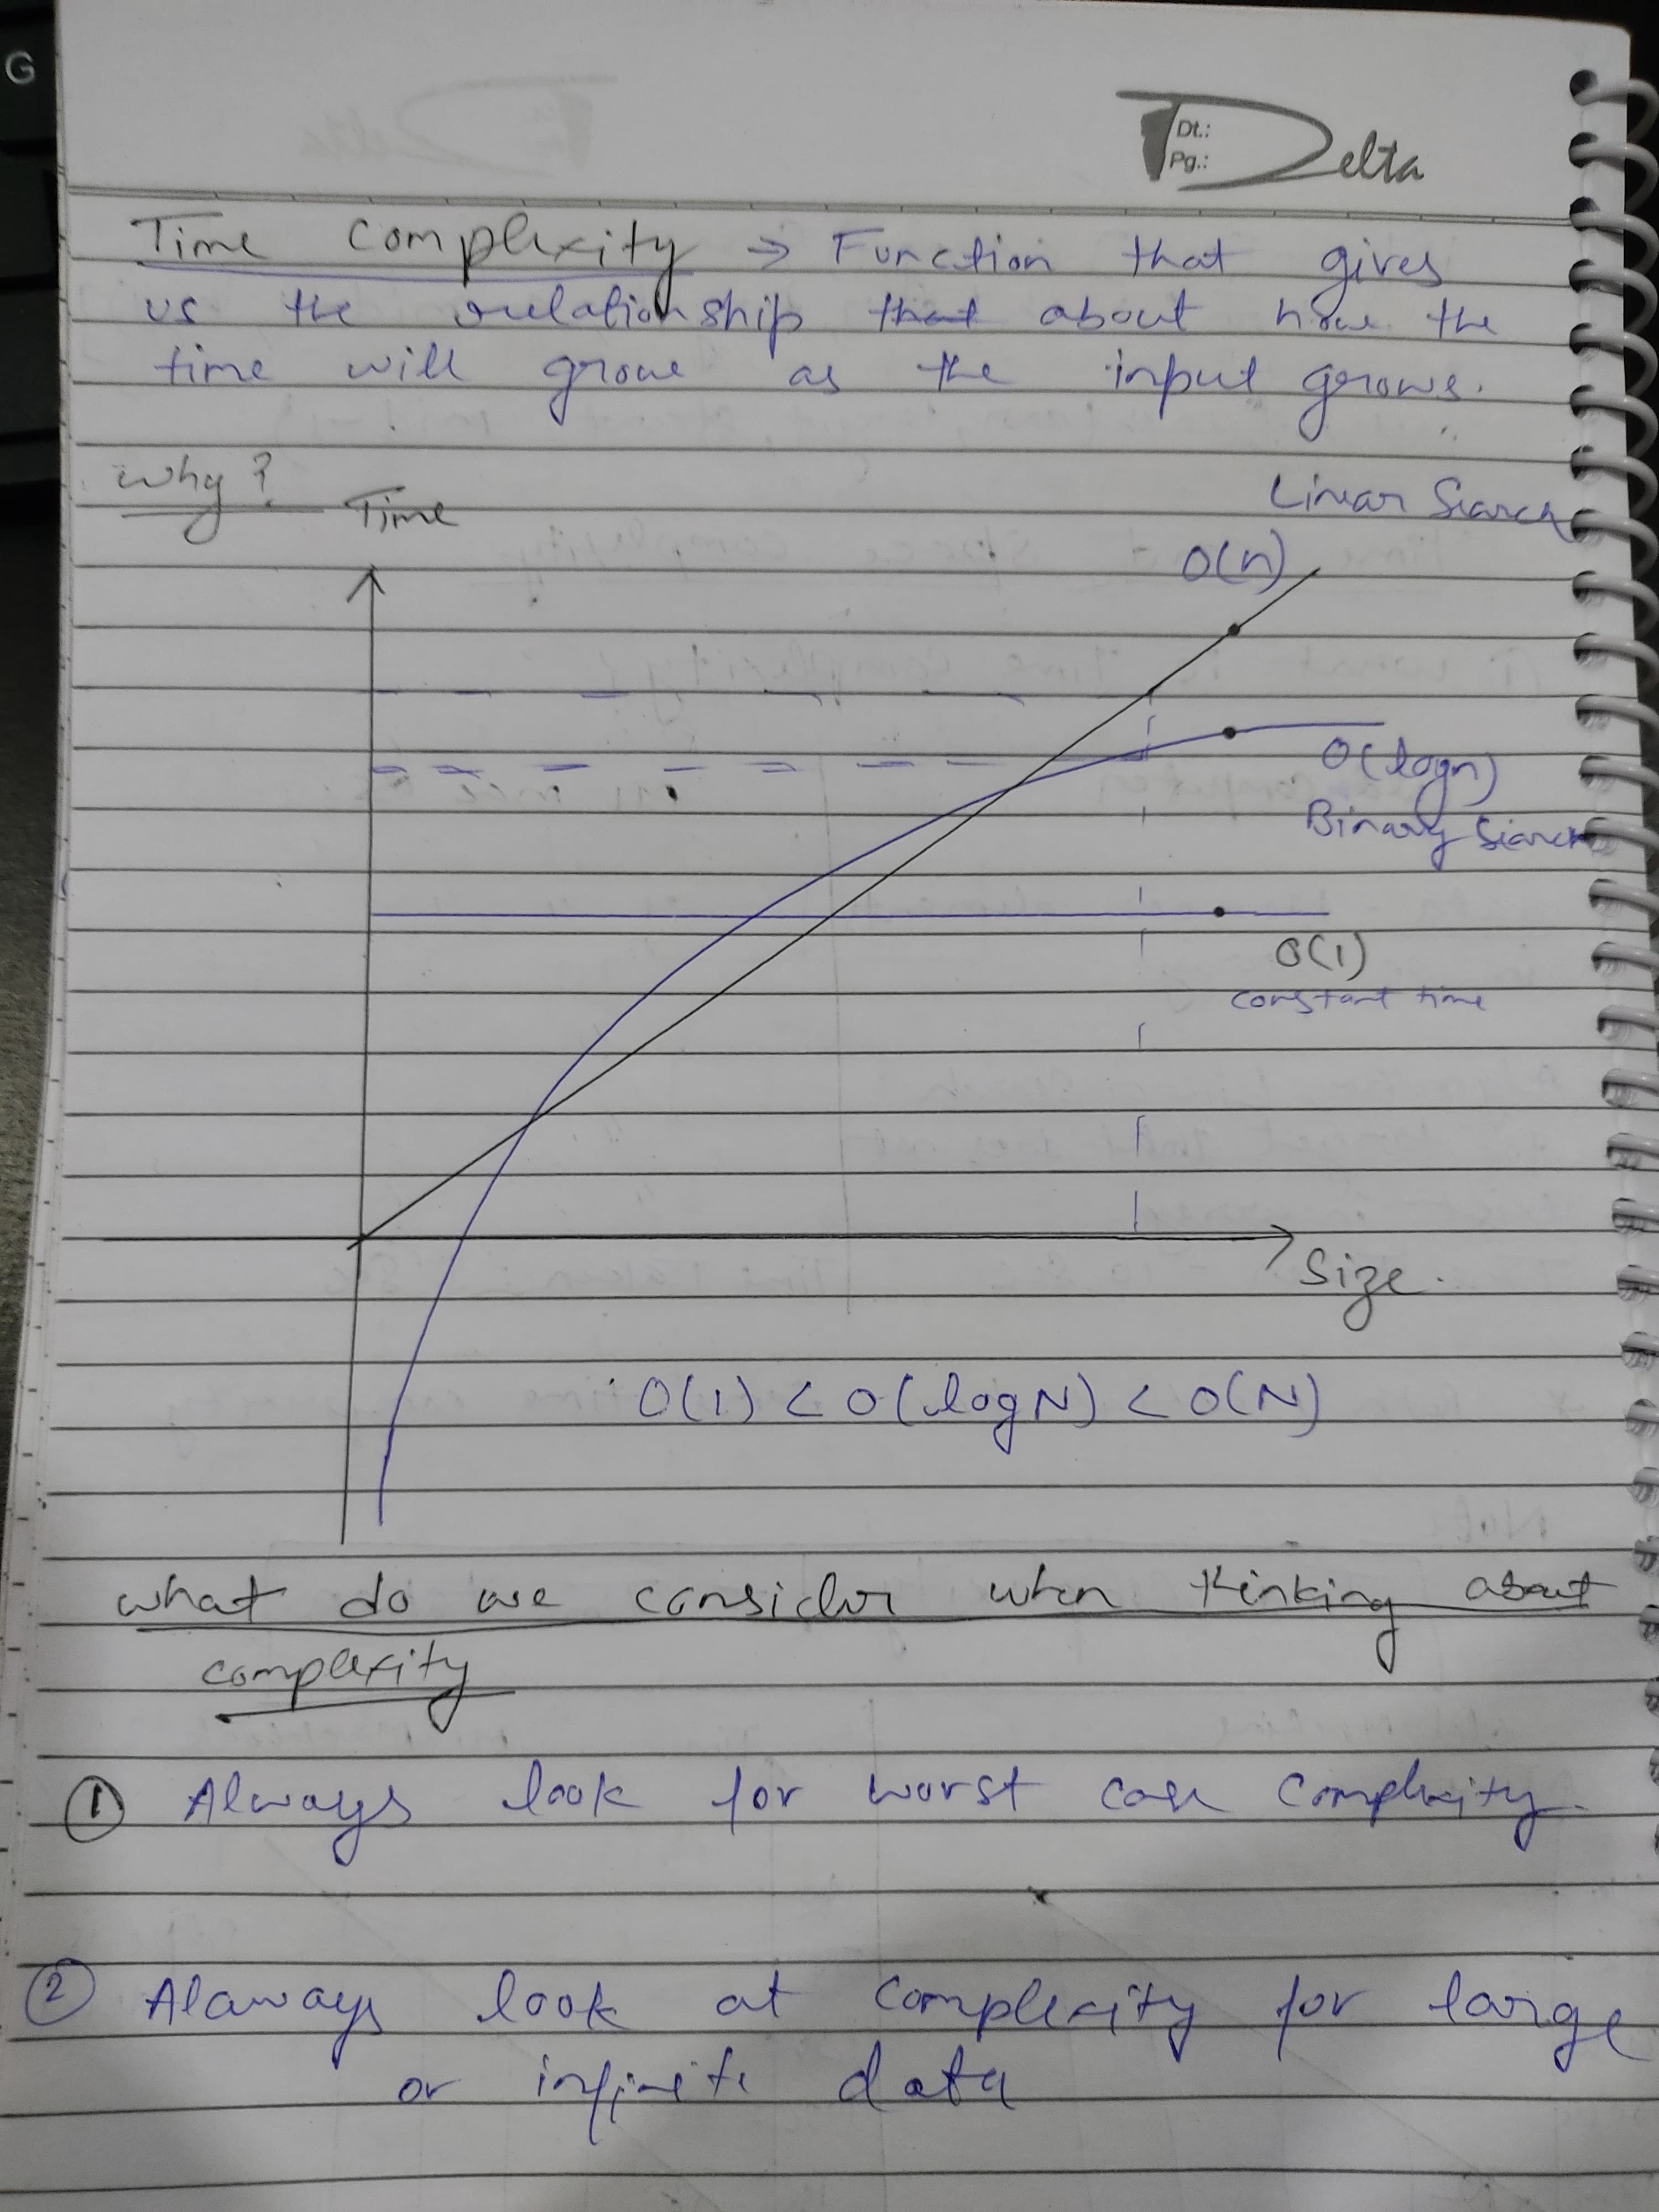 G
Dt.:
Pg.:
Delta
Time complexity → Function that gives
us the relationship that about how the
time will grow as the input grows.
Why?
Time
Linear Search
O(n)
O(log n)
Binary Search
O(1)
constant time
Size.
O(1) < O(log N) < O(N)
what do we consider when thinking about
complexity
① Always look for worst case complexity.
② Alaways look at complexity for large
or infinite data